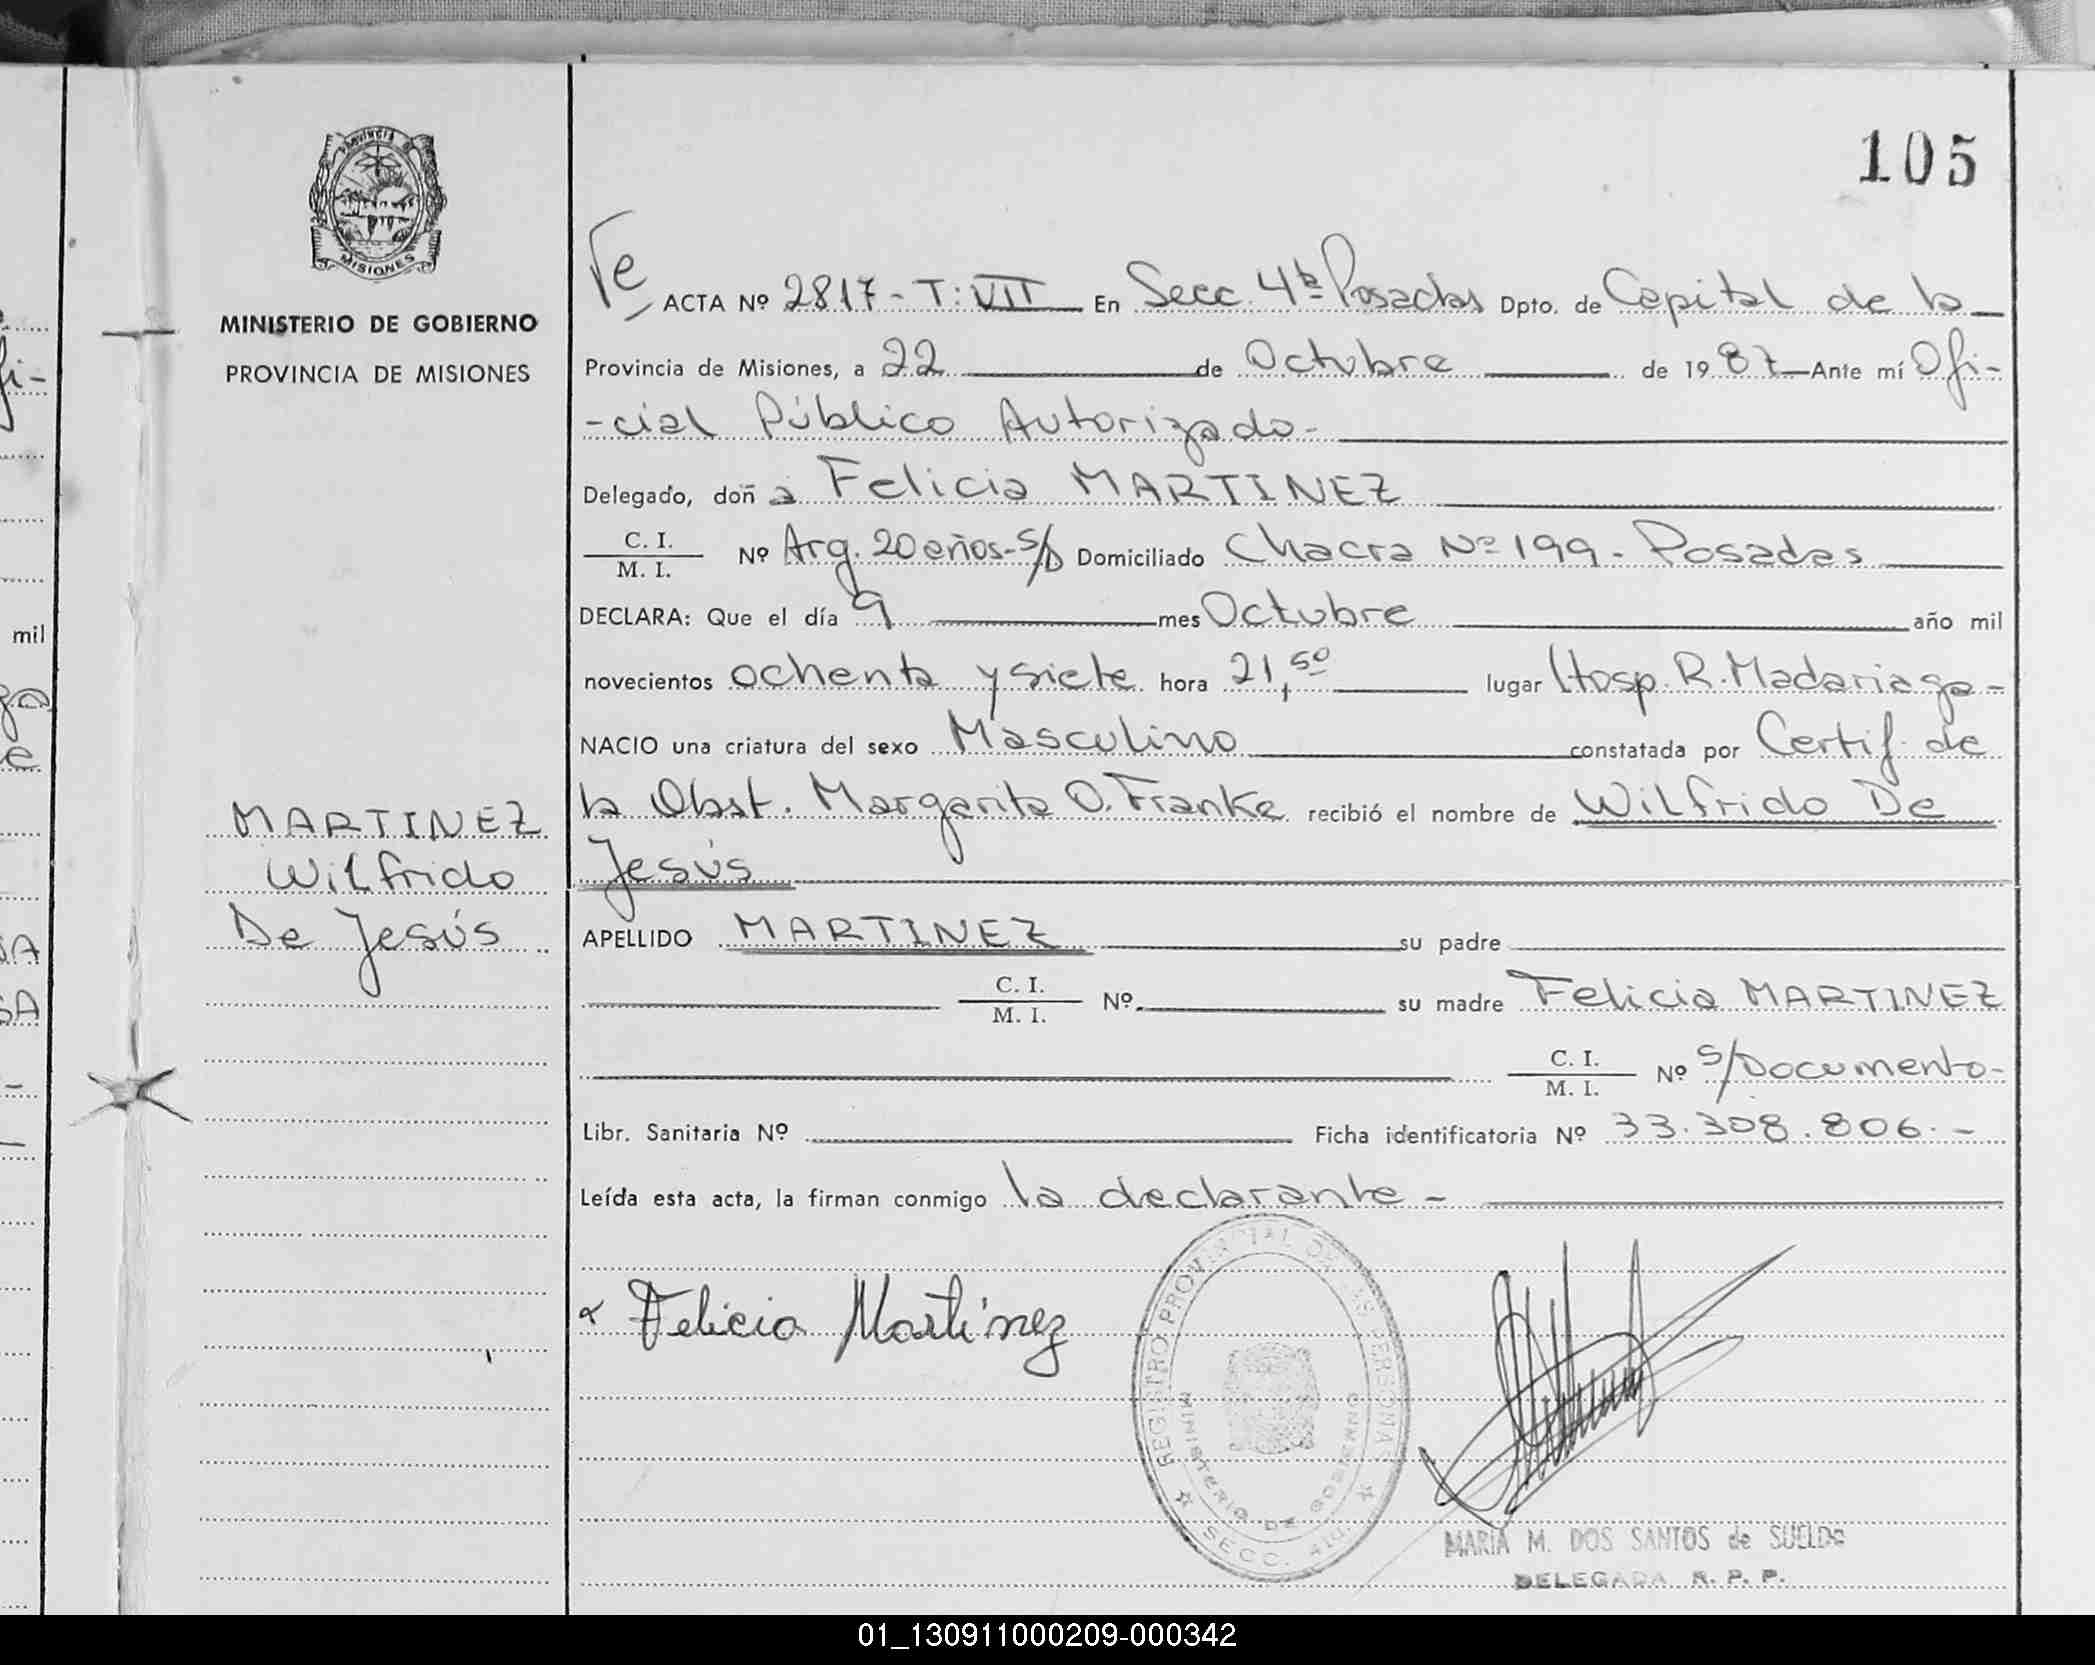 105
PROVINCIA DE
MISIONES
MINISTERIO DE GOBIERNO
PROVINCIA DE MISIONES
ACTA Nº 2817- T: VII En Secc. 4ta Posadas Dpto. de Capital de la
Provincia de Misiones, a 22 de Octubre de 1987 Ante mí Ofi-
-cial Público Autorizado-
Delegado, doña Felicia MARTINEZ
C. I.
M. I.
Nº Arg. 20 años-S/D Domiciliado Chacra Nº 199 - Posadas
DECLARA: Que el día 9 mes Octubre año mil
novecientos ochenta y siete hora 21,50 lugar Hosp. R. Madariaga-
NACIO una criatura del sexo Masculino constatada por Certif. de
la Obst. Margarita O. Franke recibió el nombre de Wilfrido De
Jesús
APELLIDO MARTINEZ su padre
C. I.
M. I.
Nº su madre Felicia MARTINEZ
C. I.
M. I.
Nº S/Documento-
Libr. Sanitaria Nº Ficha identificatoria Nº 33.308.806.-
Leída esta acta, la firman conmigo la declarante-
MARTINEZ
Wilfrido
De Jesús
Felicia Martínez
REGISTRO PROVINCIAL DE LAS PERSONAS
MINISTERIO DE GOBIERNO
SECC. 4ta.
MARIA M. DOS SANTOS de SUELDO
DELEGADA R. P. P.
mil
01_130911000209-000342